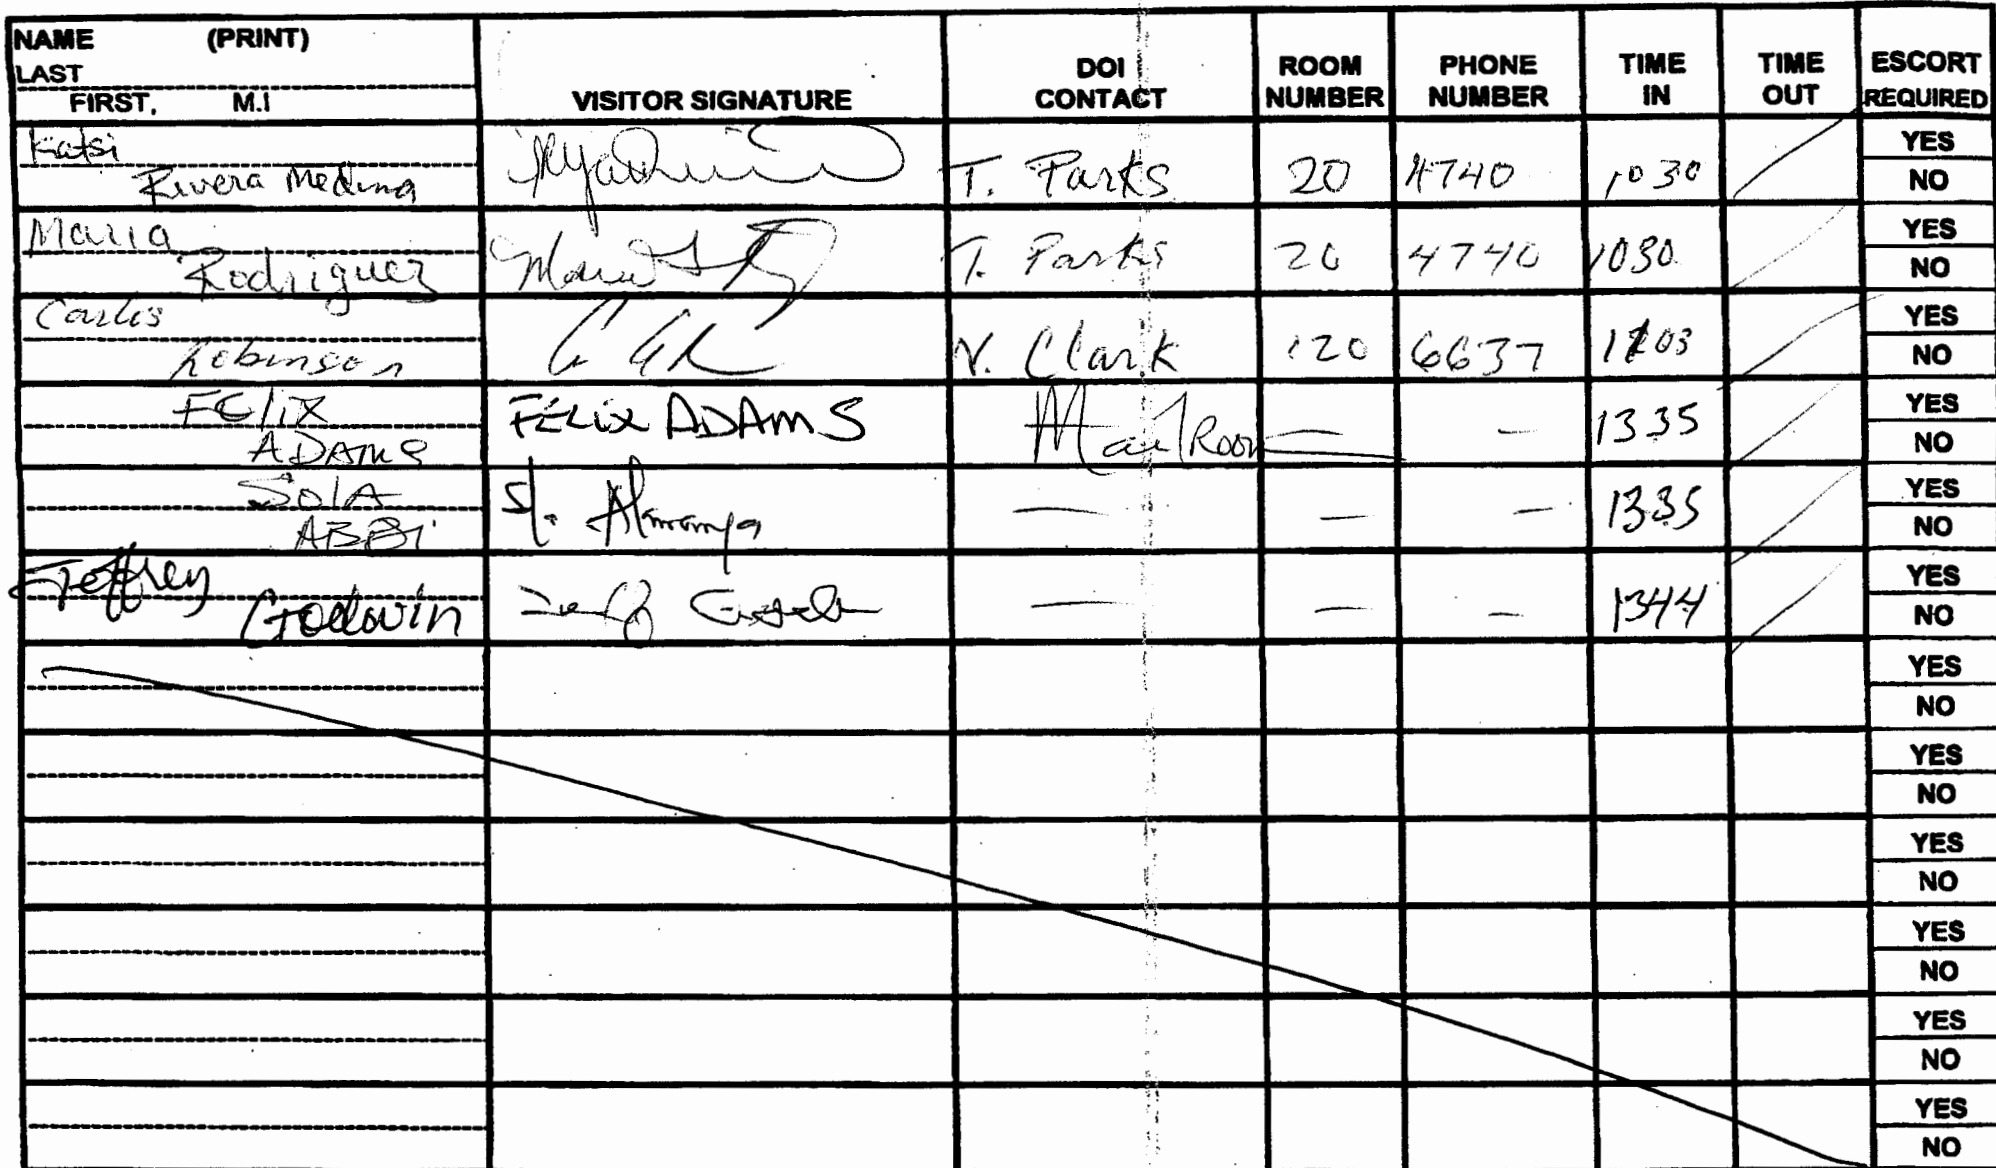 NAME (PRINT)
LAST
FIRST, M.I
VISITOR SIGNATURE
DOI CONTACT
ROOM NUMBER
PHONE NUMBER
TIME IN
TIME OUT
ESCORT REQUIRED
Katsi
Rivera Medina
T. Parks 20 4740 1030
YES
NO
Maria
Rodriguez
Maria
T. Parks 20 4740 1030
YES
NO
Carlis
Robinson
N. Clark 120 6637 1203
YES
NO
FEliX
ADAMS
FELiX ADAMS
Mail Room — — 1335
YES
NO
SolA
ABBi
— — — 1335
YES
NO
Jeffrey
Godwin
— — — 1344
YES
NO
YES
NO
YES
NO
YES
NO
YES
NO
YES
NO
YES
NO